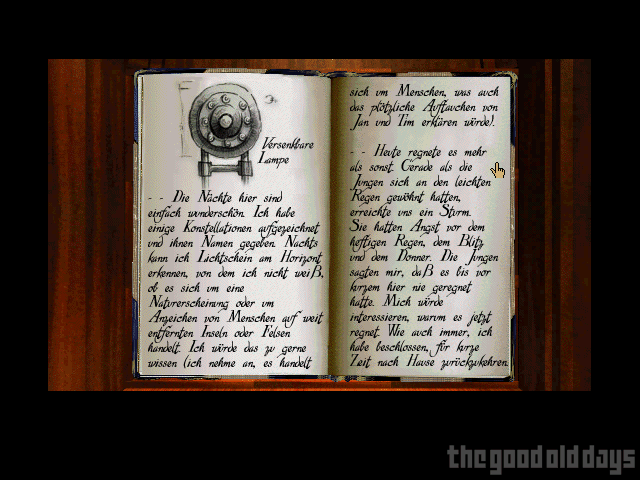 Versenkbare
Lampe
- - Die Nächte hier sind
einfach wunderschön. Ich habe
einige Konstellationen aufgezeichnet
und ihnen Namen gegeben. Nachts
kann ich Lichtschein am Horizont
erkennen, von dem ich nicht weiß,
ob es sich um eine
Naturerscheinung oder um
Anzeichen von Menschen auf weit
entfernten Inseln oder Felsen
handelt. Ich würde das zu gerne
wissen (ich nehme an, es handelt
sich um Menschen, was auch
das plötzliche Auftauchen von
Jan und Tim erklären würde).
- - Heute regnete es mehr
als sonst. Gerade als die
Jungen sich an den leichten
Regen gewöhnt hatten,
erreichte uns ein Sturm.
Sie hatten Angst vor dem
heftigen Regen, dem Blitz
und dem Donner. Die Jungen
sagten mir, daß es bis vor
kurzem hier nie geregnet
hatte. Mich würde
interessieren, warum es jetzt
regnet. Wie auch immer, ich
habe beschlossen, für kurze
Zeit nach Hause zurückzukehren.
the good old days